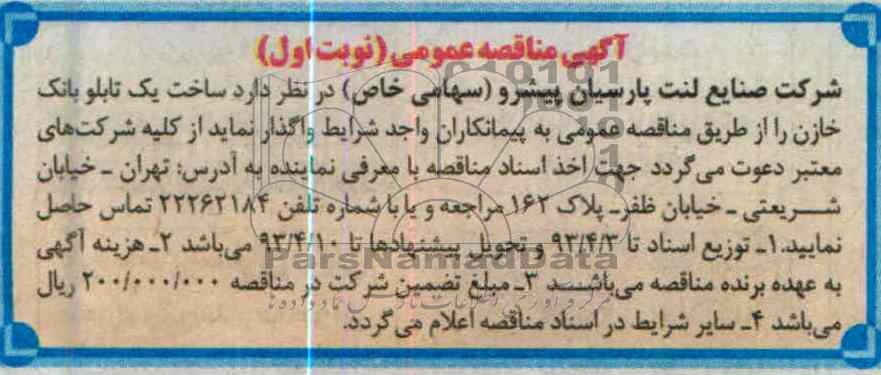 آگهی مناقصه عمومی (نوبت اول)
شرکت صنایع لنت پارسیان پیشرو (سهامی خاص) در نظر دارد ساخت یک تابلو بانک
خازن را از طریق مناقصه عمومی به پیمانکاران واجد شرایط واگذار نماید از کلیه شرکت‌های
معتبر دعوت می‌گردد جهت اخذ اسناد مناقصه با معرفی نماینده به آدرس: تهران ـ خیابان
شـــریعتی ـ خیابان ظفرـ پلاک ۱۶۲ مراجعه و یا با شماره تلفن ۲۲۲۶۲۱۸۴ تماس حاصل
نمایید.۱ـ توزیع اسناد تا ۹۳/۴/۳ و تحویل پیشنهادها تا ۹۳/۴/۱۰ می‌باشد ۲ـ هزینه آگهی
به عهده برنده مناقصه می‌باشـــد ۳ـ مبلغ تضمین شرکت در مناقصه ۲۰۰/۰۰۰/۰۰۰ ریال
می‌باشد ۴ـ سایر شرایط در اسناد مناقصه اعلام می‌گردد.
ParsNamadData